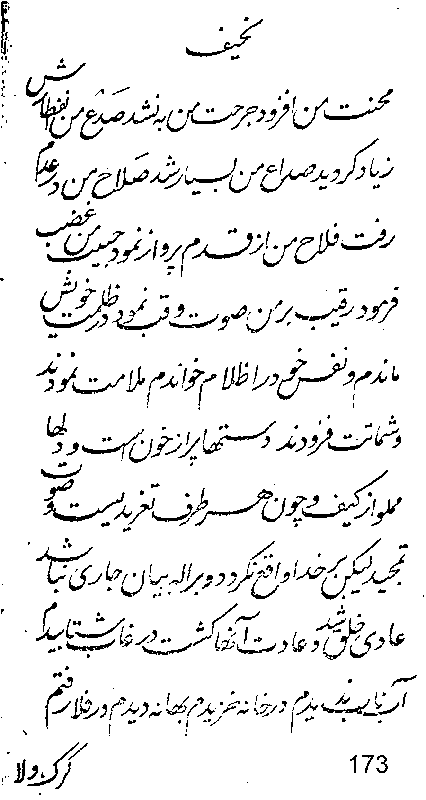 نحیف
محنت من افزود جرحت من به نشد صدع من انفطارش
زیاد کردید صداع من بسیار شد صلاح من در عدام
رفت فلاح من از قدم پرواز نمود حبیب من غضب
فرمود رقیب بر من صوت و قب نمود در ظلمت خویش
ماندم و نفس خود را ظلام خواندم ملامت نمودند
و شماتت فزودند دستها پر از خون است و دلها
مملو از کیف و چون هر طرف تغرید یست و صوت
تمجید لیکن بر خدا واقع نکردد و براله بیان جاری نباشد
عادی خلق شد و عادت آنها کشت در غاب شتابیدم
آب نایاب بدیدم در خانه خزیدم بهانه دیدم در فلا رفتم
173
گرگ و لا